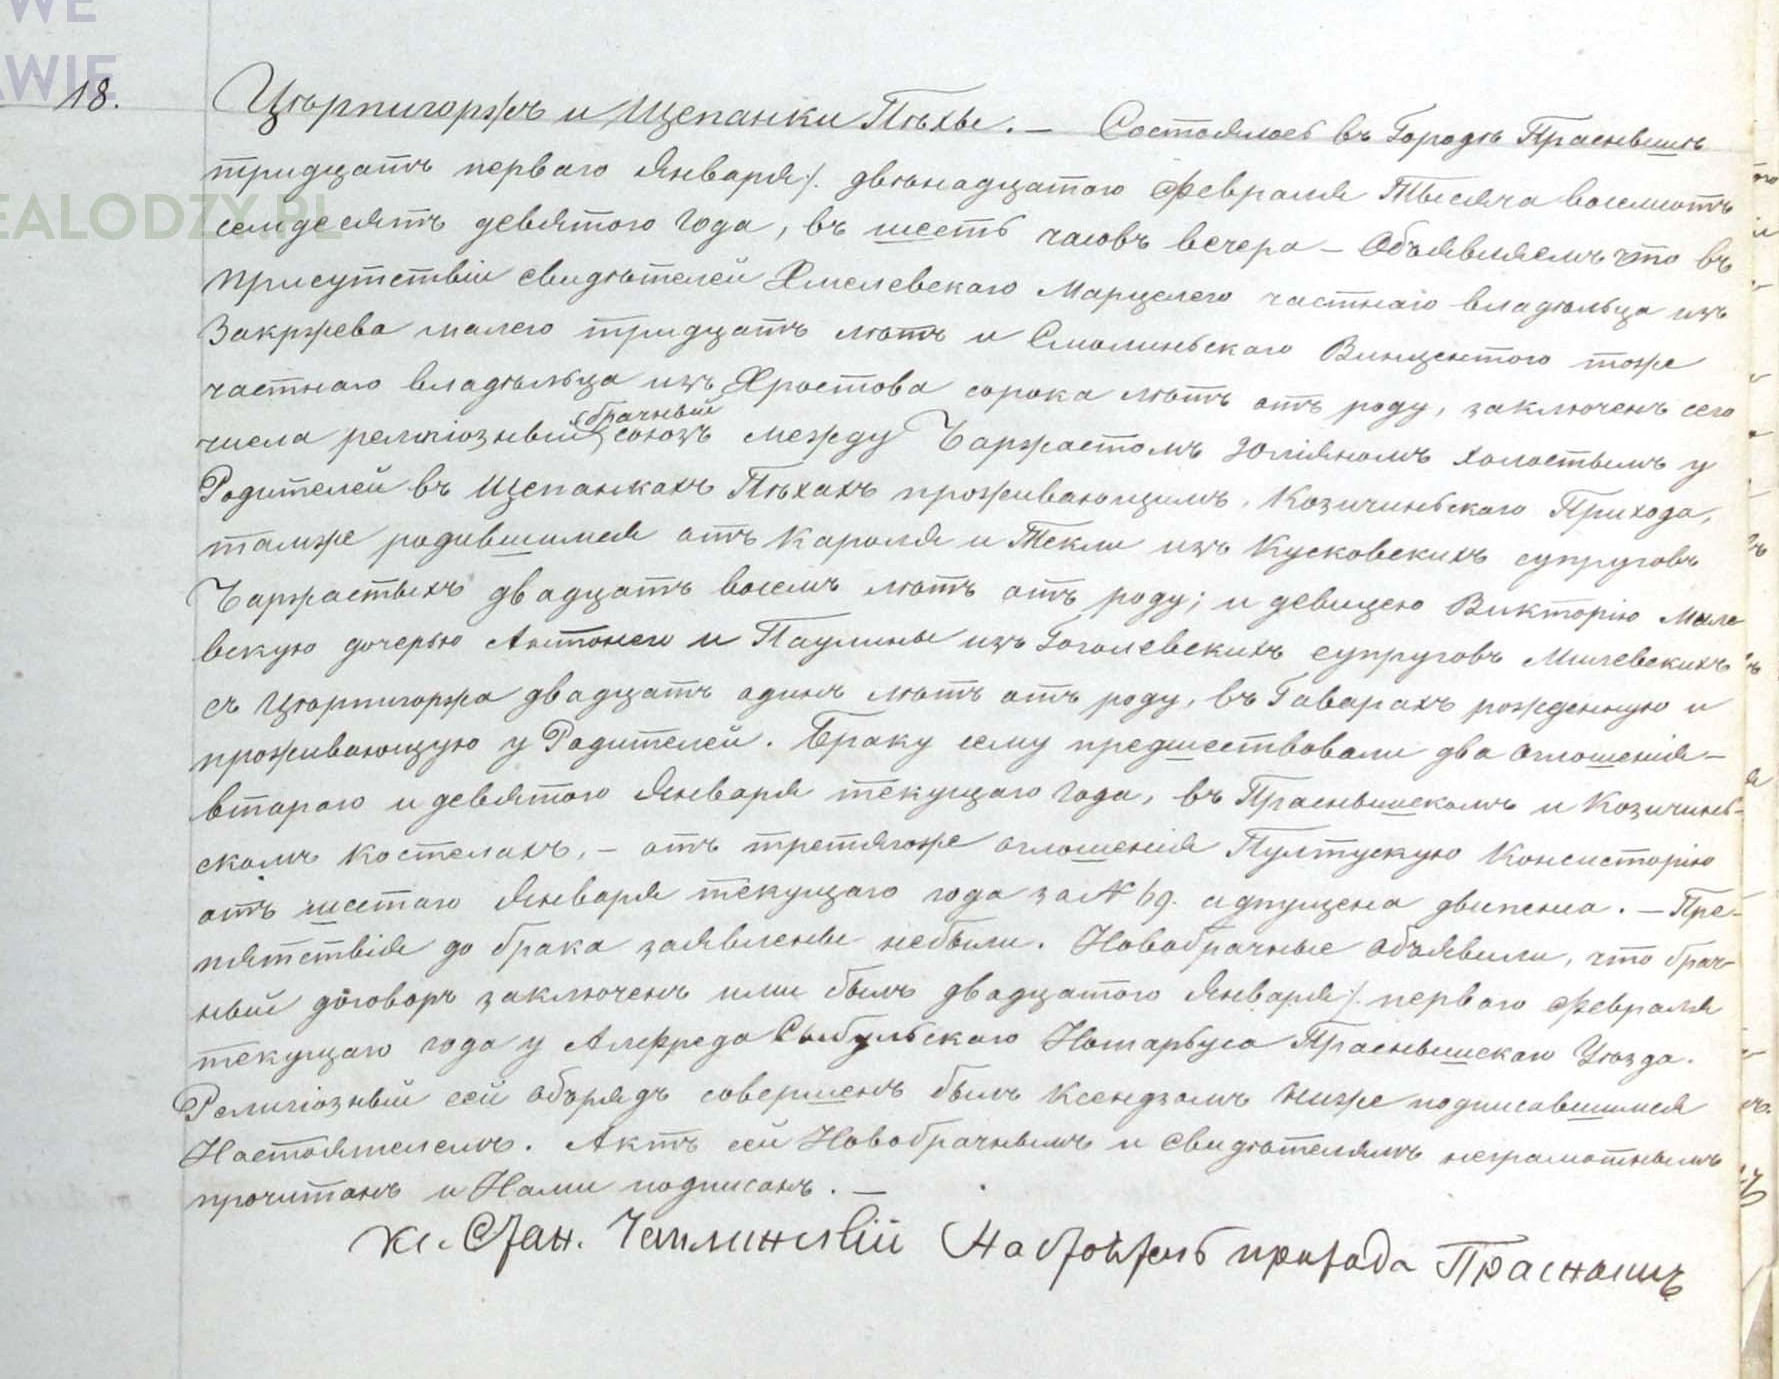 WE
AWIE
EALODZY.PL
18.
Цѣрпигоржъ и Щепанки Пѣхы. — Состоялось въ Городѣ Праснышѣ
тридцать перваго Января/. двѣнадцатого Февраля Тысяча восемьотъ
семдесятъ девятого Года, въ шесть часовъ вечера — Объявляемъ что въ
присутствіи свидѣтелей Хмелевскаго Марцелего частнаго владѣльца изъ
Закржева малего тридцать лѣтъ и Смолиньскаго Винцентого тоже
частнаго владѣльца изъ Хростова сорока лѣтъ отъ роду, заключенъ сего
числа религіозный брачный союзъ между Чаржастомъ Юліяномъ холостымъ у
Родителей въ Щепанкахъ Пѣхахъ проживающимъ, Козичиньскаго Прихода,
тамже родившимся отъ Кароля и Текли изъ Кусковскихъ супруговъ
Чаржастыхъ двадцать восемъ лѣтъ отъ роду; и девицею Викторію Миле
вскую дочерью Антонего и Паулины изъ Гоголевскихъ супруговъ Милевскихъ
съ Цѣрпигоржа двадцать одинъ лѣтъ отъ роду, въ Гаварахъ рожденную и
проживающую у Родителей. Браку сему предшествовали два оглошенія —
втораго и девятого Января текущаго Года, въ Праснышскомъ и Козичинь-
скомъ Костелахъ, — отъ третягоже оглошенія Пултускую Консисторію
отъ шестаго Января текущаго года за N 69. адпущена двипенса. — Пре-
пятствія до брака заявлены небыли. Новобрачные объявили, что брач-
ный договоръ заключенъ ими былъ двадцатого Января/. перваго Февраля
текущаго года у Алфреда Сыбульскаго Нотарьуса Праснышскаго Уѣзда.
Религіозный сей обърядъ совершенъ былъ Ксендзомъ ниже подписавшимся
Настоятелемъ. Актъ сей Новобрачнымъ и Свидѣтелямъ неграмотнымъ
прочитанъ и Нами подписанъ. —
Кс. Стан. Чаплинскій Настоятель прихода Праснышъ